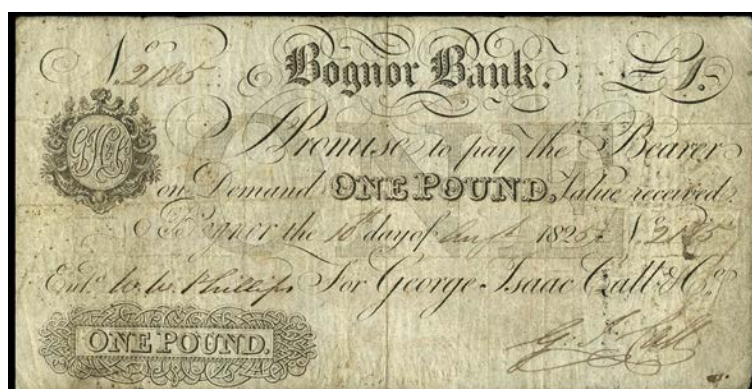 No. 2185 Bognor Bank. £1.
ONE
I Promise to pay the Bearer
on Demand ONE POUND. Value received.
Bognor the 18th day of Augst 1825. No. 2185
Entd. W. W. Phillips For George Isaac Catt & Co.
ONE POUND. G. I. Catt